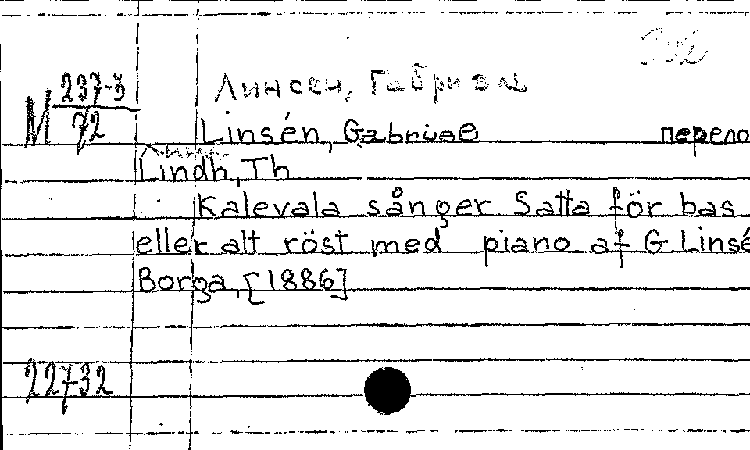 Линсен, Габриэл
М 237-3
72
Linsén, Gabriae перело
Lindh, Th
Kalevala sånger Satta för bas
eller alt röst med piano af G Linsé
Borga, [1886]
22732